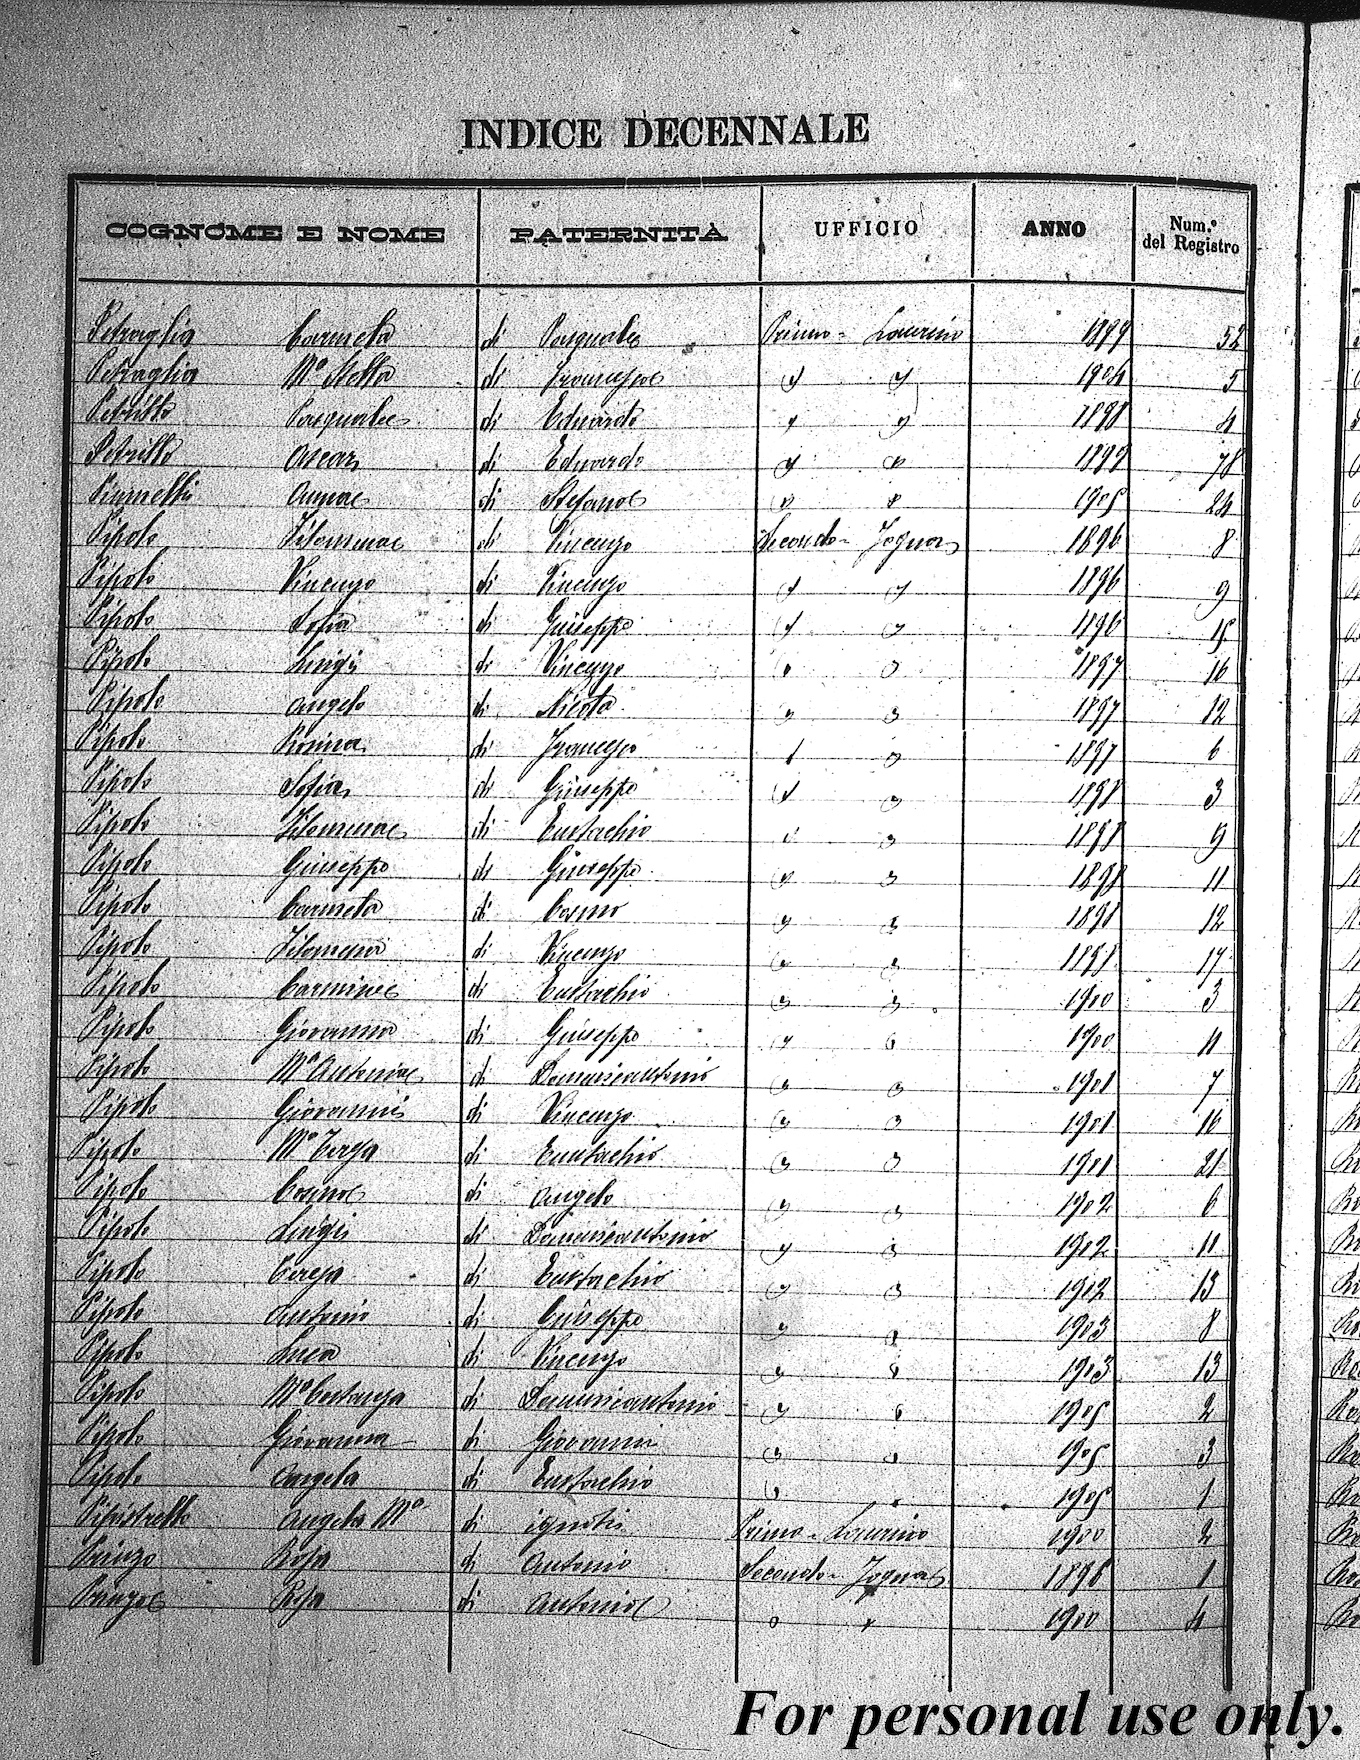 INDICE DECENNALE
COGNOME E NOME PATERNITÀ UFFICIO ANNO Num.º del Registro
Petraglia Carmela di Pasquale Primo - Laurino 1899 52
Petraglia Mª Stella di Francesco " " 1904 5
Petrillo Pasquale di Eduardo " " 1898 4
Petrillo Oscar di Eduardo " " 1899 78
Piumelli Anna di Stefano " " 1905 24
Pipolo Filomena di Vincenzo Secondo - Fogna 1896 8
Pipolo Vincenzo di Vincenzo " " 1896 9
Pipolo Sofia di Giuseppe " " 1896 15
Pipolo Luigi di Vincenzo " " 1897 16
Pipolo Angelo di Nicola " " 1897 12
Pipolo Rosina di Francesco " " 1897 6
Pipolo Sofia di Giuseppe " " 1898 3
Pipolo Filomena di Eustachio " " 1898 9
Pipolo Giuseppe di Giuseppe " " 1898 11
Pipolo Carmela di Cosimo " " 1898 12
Pipolo Filomena di Vincenzo " " 1898 17
Pipolo Carmine di Eustachio " " 1900 3
Pipolo Giovanna di Giuseppe " " 1900 11
Pipolo Mª Antonia di Domenicantonio " " 1901 7
Pipolo Giovanni di Vincenzo " " 1901 16
Pipolo Mª Teresa di Eustachio " " 1901 21
Pipolo Cosimo di Angelo " " 1902 6
Pipolo Luigi di Domenicantonio " " 1902 11
Pipolo Teresa di Eustachio " " 1902 13
Pipolo Antonio di Giuseppe " " 1903 8
Pipolo Luca di Vincenzo " " 1903 13
Pipolo Mª Costanza di Domenicantonio " " 1905 2
Pipolo Giovanna di Giovanni " " 1905 3
Pipolo Angela di Eustachio " " 1905 1
Pipistrello Angela Mª di ignoti Primo - Laurino 1900 2
Prinzo Rosa di Antonio Secondo - Fogna 1896 1
Prinzo Rosa di Antonio " " 1900 4
For personal use only.